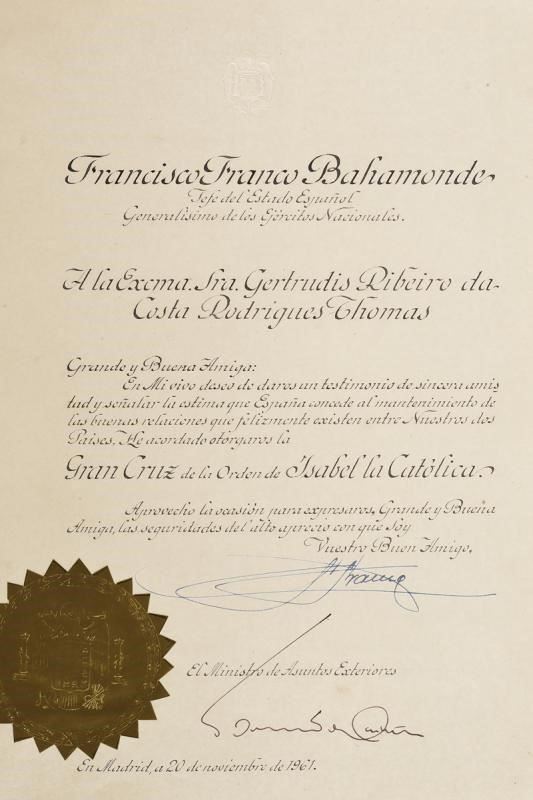 Francisco Franco Bahamonde
Jefe del Estado Español
Generalísimo de los Ejércitos Nacionales.
A la Excma. Sra. Gertrudis Ribeiro da
Costa Rodrigues Thomas
Grande y Buena Amiga:
En Mi vivo deseo de daros un testimonio de sincera amis
tad y señalar la estima que España concede al mantenimiento de
las buenas relaciones que felizmente existen entre Nuestros dos
Países, He acordado otorgaros la
Gran Cruz de la Orden de Isabel la Católica.
Aprovecho la ocasión para expresaros, Grande y Buena
Amiga, las seguridades del alto aprecio con que soy
Vuestro Buen Amigo,
F Franco
El Ministro de Asuntos Exteriores
En Madrid, a 20 de noviembre de 1961.